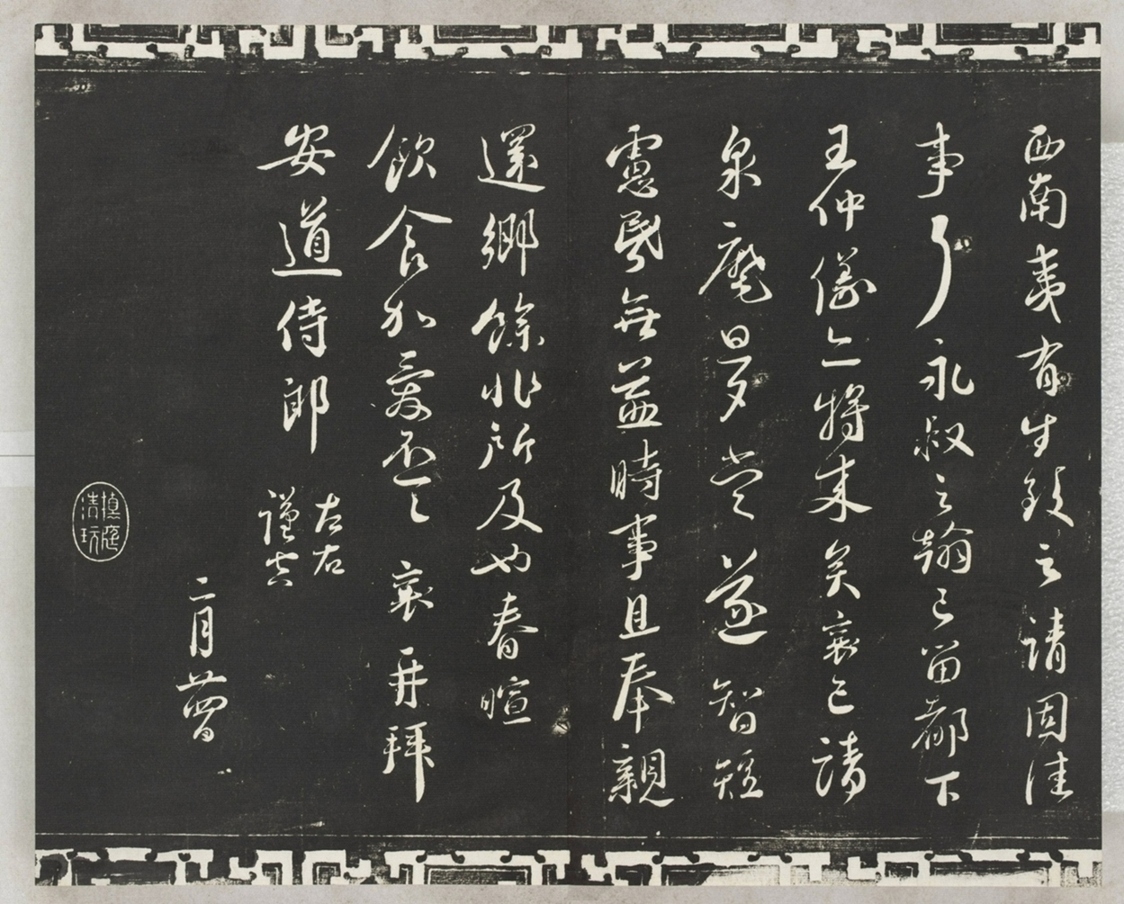 西南夷有生之請固佳
事了永叔之翰已留都下
王仲儀亦將来矣襄已請
泉麾旦夕當遂智短
慮昬無益時事且奉親
還鄉餘非所及也春暄
飲食加愛不一一襄再拜
安道侍郎
左右
謹空
二月廿四日
庭清玩